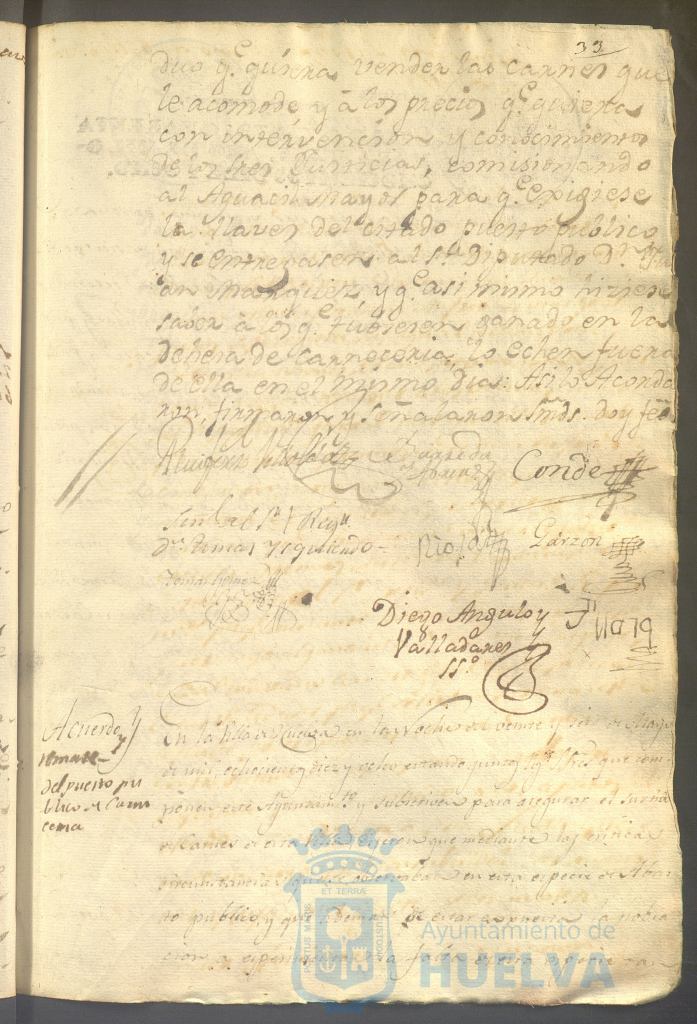 33
duo q.e quiera vender las carnes que
le acomode y à los precios q.e quiera
con intervencion y conocimiento
de los Sres Justicias, comisionando
al Aguacil mayor para q.e exigiese
la llaves del citado puesto publico
y se entregasen al S.r Diputado D.n Ju
an Marquez y q.e asi mismo hiziese
saver à los q.e tubieren ganado en la
dehesa de carneceria lo echen fuera
de ella en el mismo dia: Asi lo Acorda
ron, firmaron y señalaron Smds. doy fee
Conde
Señ.l del S.r Reg.r
d.n Tomas Yzquierdo
Rioja Garzon
Diego Angulo y
Valladares
SS.o
Acuerdo y
remate
del puesto pu
blico de Carni
ceria
En la Villa de Huelva en la Noche del veinte y seis de Mayo
de mil, ochocientos diez y ocho estando juntos los Sres. que com-
ponen este Ayuntam.to y subietiva para asegurar el surtido
de Carnes de esta Villa dijeron que mediante las criticas
circunstancias que se observaban en esta especie de Abas-
to publico, y que ademas de estar expuesta la pobla
cion a experimentar la falta de esta especie
ET TERRÆ
CUSTODIA
Ayuntamiento de
HUELVA